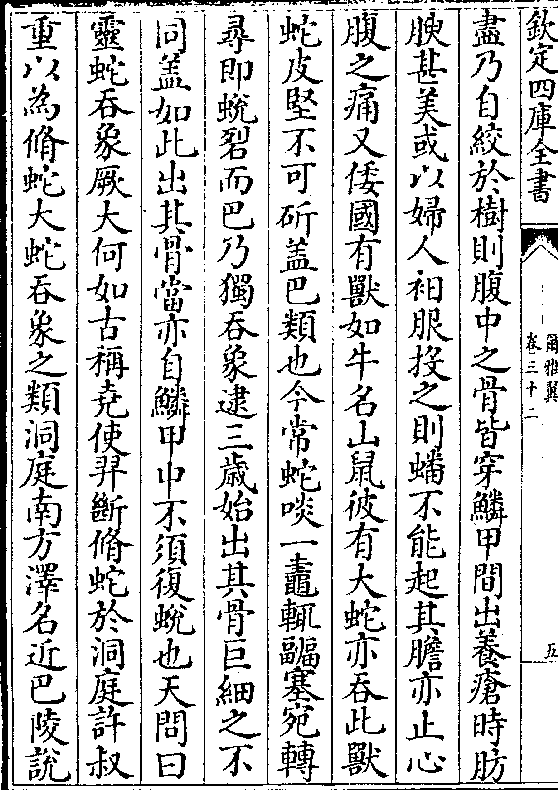 欽定四庫全書
爾雅翼
卷三十二
五
盡乃自絞於樹則腹中之骨皆穿鱗甲間出養瘡時肪
腴甚美或以婦人衵服投之則蟠不能起其膽亦止心
腹之痛又倭國有獸如牛名山鼠彼有大蛇亦吞此獸
蛇皮堅不可斫盖巴類也今常蛇啖一鼃輒畐塞宛轉
尋即蛻裂而巴乃獨吞象逮三歳始出其骨巨細之不
同盖如此出其骨當亦自鱗甲中不須復蛻也天問曰
靈蛇吞象厥大何如古稱堯使羿斷脩蛇於洞庭許叔
重以為脩蛇大蛇吞象之類洞庭南方澤名近巴陵說